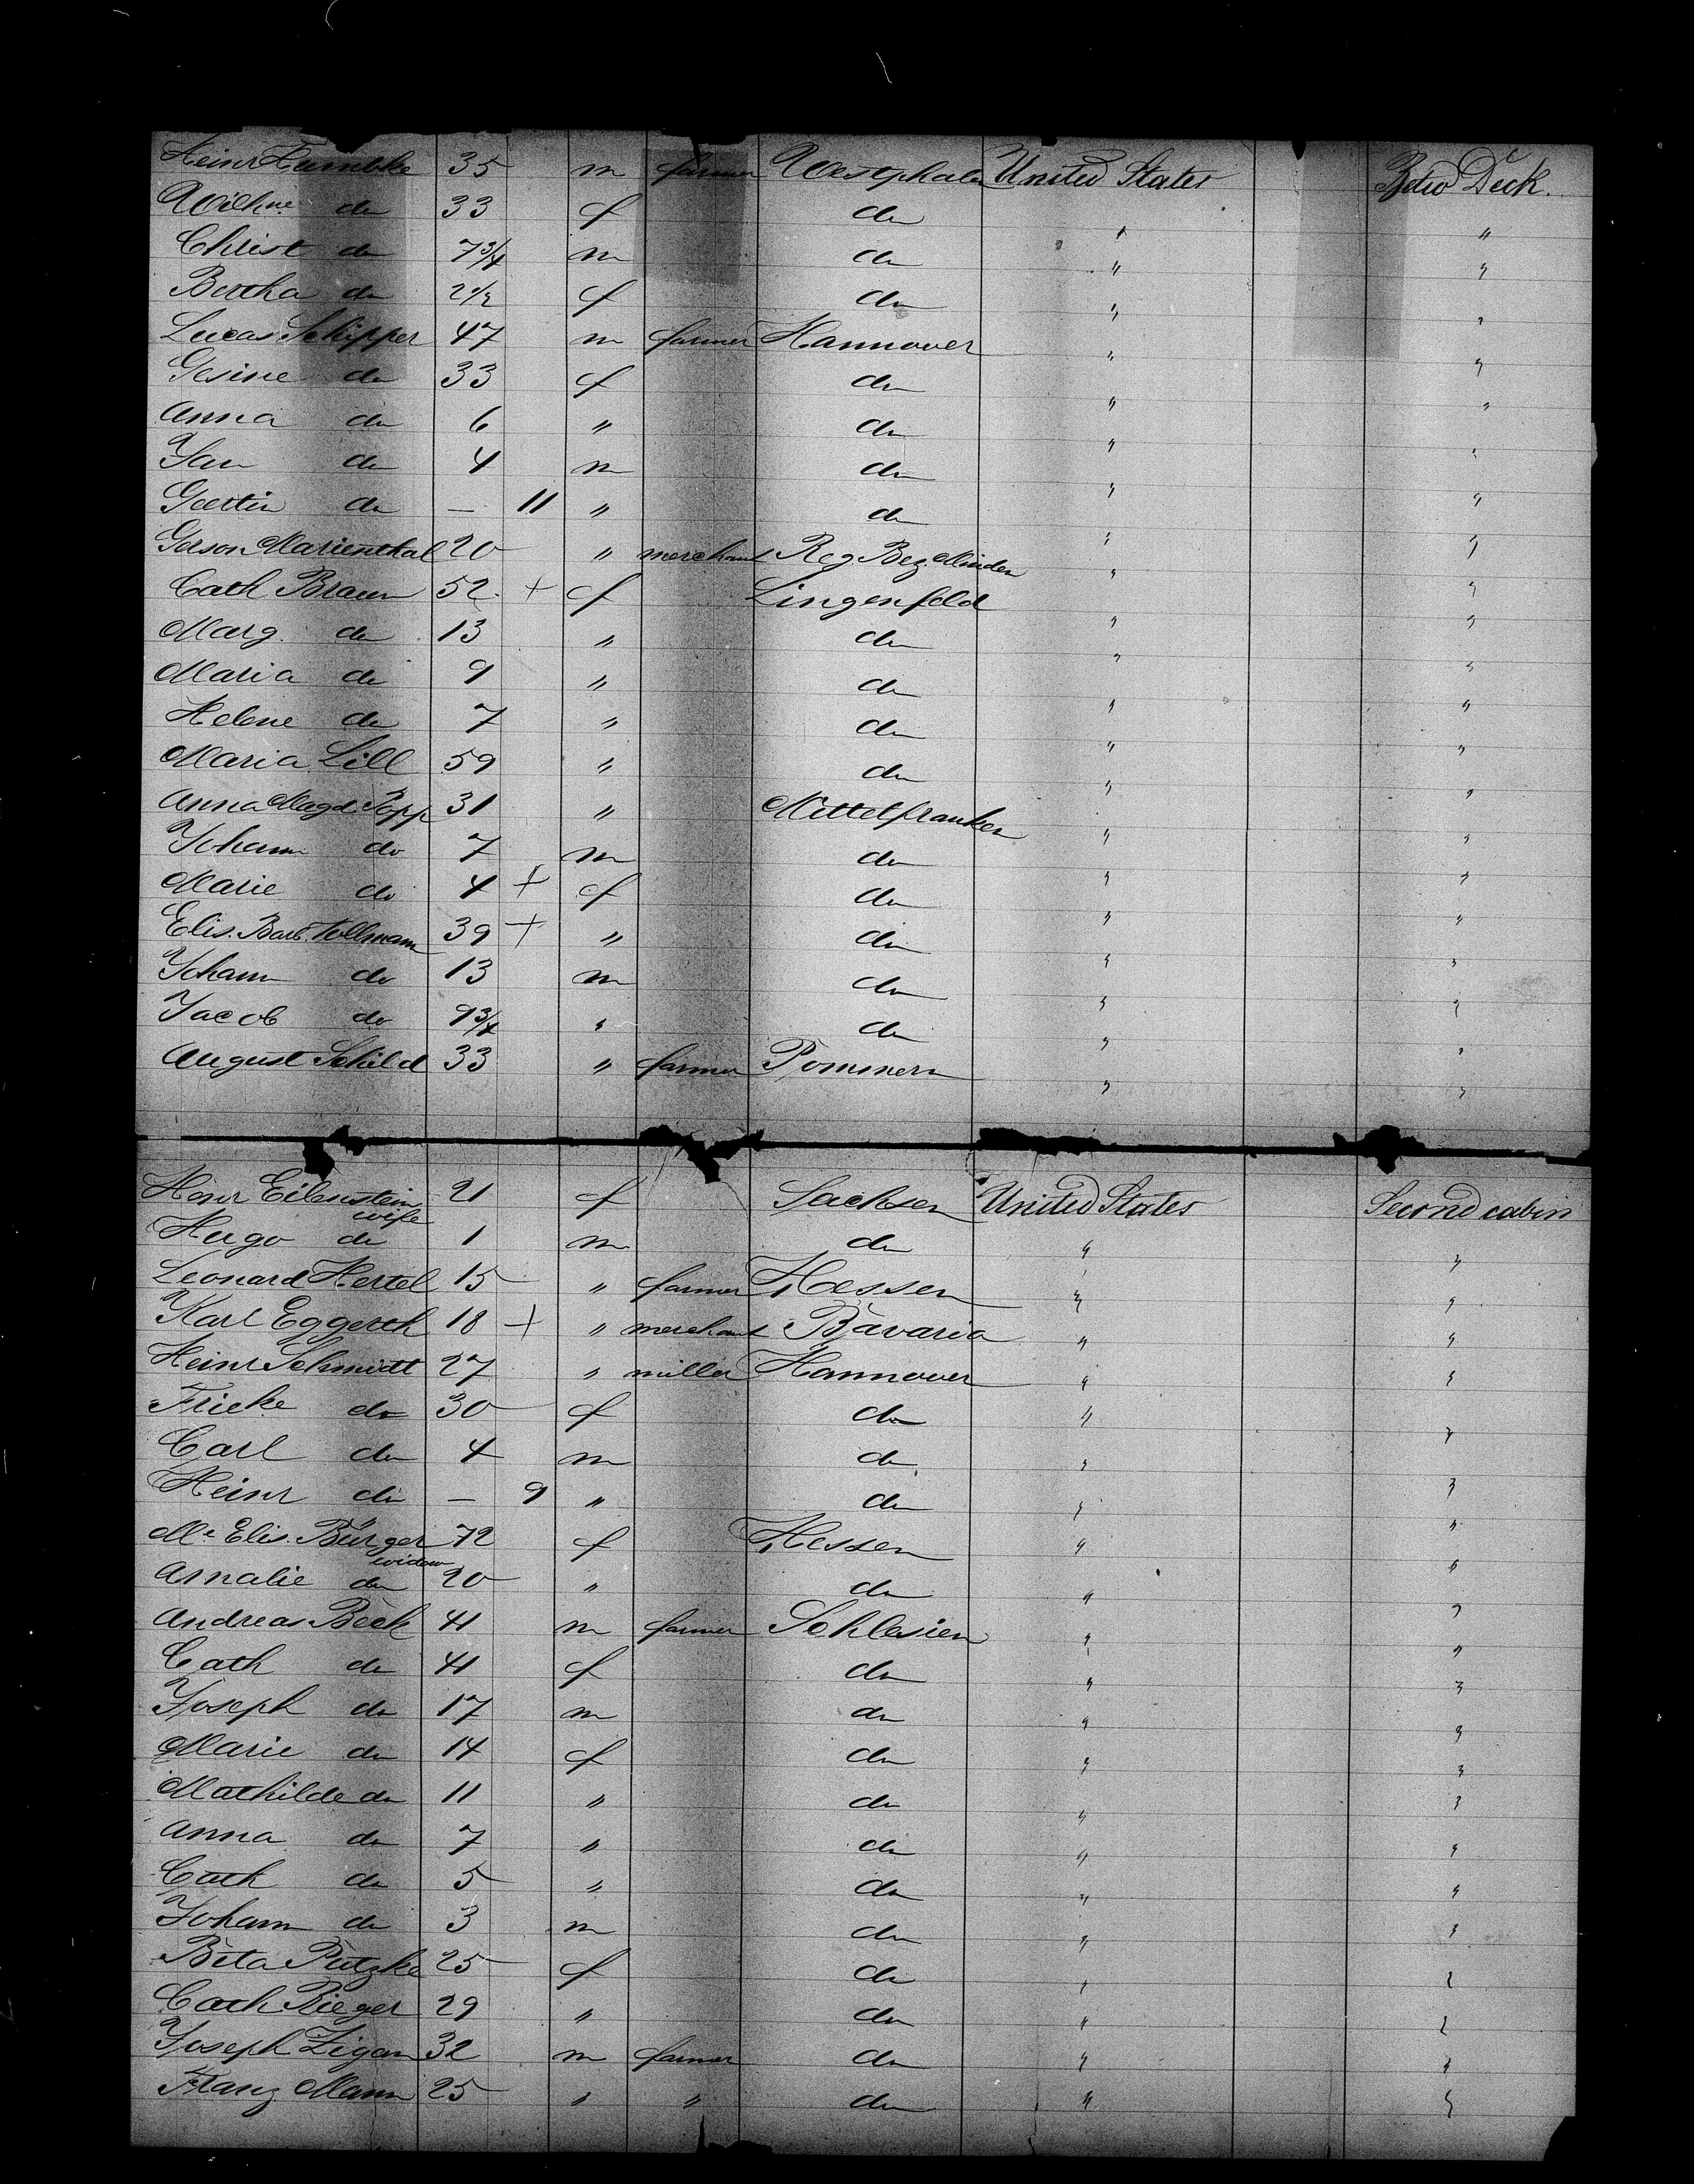 Heinr Humbke 35 m farmer Westphalen United States Betw Deck.
Wilhne do 33 f do " "
Christ do 7 3/4 m do " "
Bertha do 2 1/2 f do " "
Lucas Schipper 47 m farmer Hannover " "
Gesine do 33 f do " "
Anna do 6 " do " "
Jan do 4 m do " "
Geettin do — 11 " do " "
Gerson Marienthal 20 " merchant Reg Bez. Minden " "
Cath Braun 52. + f Lingenfeld " "
Marg. do 13 " do " "
Maria do 9 " do " "
Helene do 7 " do " "
Maria Lill 59 " do " "
Anna Magd Popp 31 " Mittelfranken " "
Johann do 7 m do " "
Marie do 4 + f do " "
Elis. Barb. Vollmann 39 + " do " "
Johann do 13 m do " "
Jacob do 9 3/4 " do " "
August Schild 33 " farmer Pommern " "
Henr Eilenstein 21 f Sachsen United States Second cabin
wife
Hugo do 1 m do " "
Leonard Hertel 15 " farmer Hessen " "
Karl Eggerth 18 + " merchant Bavaria " "
Heinr Schmidt 27 " miller Hannover " "
Fricke do 30 f do " "
Carl do 4 m do " "
Heinr do — 9 " do " "
Me Elis. Bürger 72 f Hessen " "
widow
Amalie do 20 " do " "
Andreas Beck 41 m farmer Schlesien " "
Cath do 41 f do " "
Joseph do 17 m do " "
Marie do 14 f do " "
Mathilde do 11 " do " "
Anna do 7 " do " "
Cath do 5 " do " "
Johann do 3 m do " "
Beta Putzke 25 f do " "
Cath Rieger 29 " do " "
Joseph Zigan 32 m farmer do " "
Franz Mann 25 " " do " "